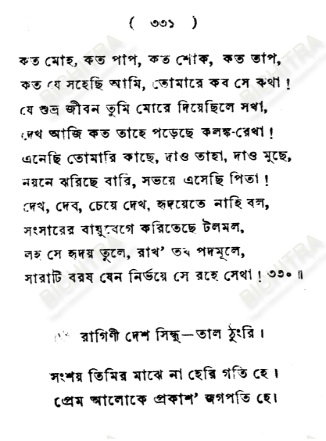 ( ৩৩১ )
কত মোহ, কত পাপ, কত শোক, কত তাপ,
কত যে সহেছি আমি, তোমারে কব সে কথা !
যে শুভ্র জীবন তুমি মোরে দিয়েছিলে সখা,
দেখ আজি কত তাহে পড়েছে কলঙ্ক-রেখা !
এনেছি তোমারি কাছে, দাও তাহা, দাও মুছে,
নয়নে ঝরিছে বারি, সভয়ে এসেছি পিতা !
দেখ, দেব, চেয়ে দেখ, হৃদয়েতে নাহি বল,
সংসারের বায়ুবেগে করিতেছে টলমল,
লহ সে হৃদয় তুলে, রাখ' তব পদমূলে,
সারাটি বরষ যেন নির্ভয়ে সে রহে সেথা ! ৩৩০ ॥
রাগিণী দেশ সিন্ধু—তাল ঠুংরি ।
সংশয় তিমির মাঝে না হেরি গতি হে ।
প্রেম আলোকে প্রকাশ' জগপতি হে ।